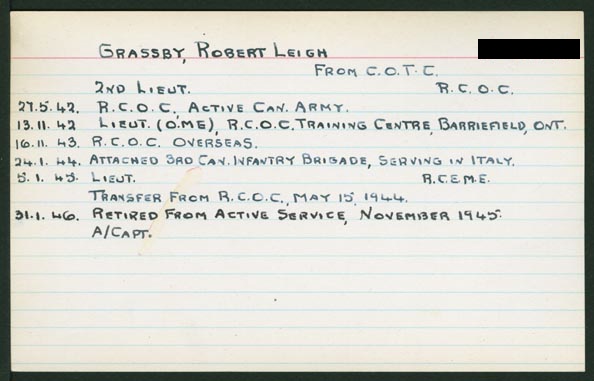 GRASSBY, ROBERT LEIGH
FROM C.O.T.C.
2ND LIEUT. R.C.O.C.
27.5.42. R.C.O.C., ACTIVE CAN. ARMY.
13.11.42 LIEUT. (O.M.E), R.C.O.C. TRAINING CENTRE, BARRIEFIELD, ONT.
16.11.43. R.C.O.C. OVERSEAS.
24.1.44. ATTACHED 3RD CAN. INFANTRY BRIGADE, SERVING IN ITALY.
5.1.45. LIEUT. R.C.E.M.E.
TRANSFER FROM R.C.O.C., MAY 15, 1944.
31.1.46. RETIRED FROM ACTIVE SERVICE, NOVEMBER 1945.
A/CAPT.